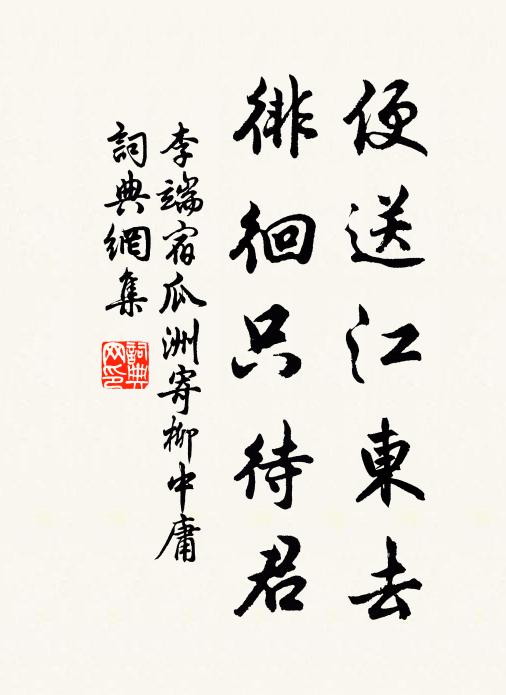 便送江東去
徘徊只待君
李端宿瓜洲寄柳中庸
詞典網集
詞典網印